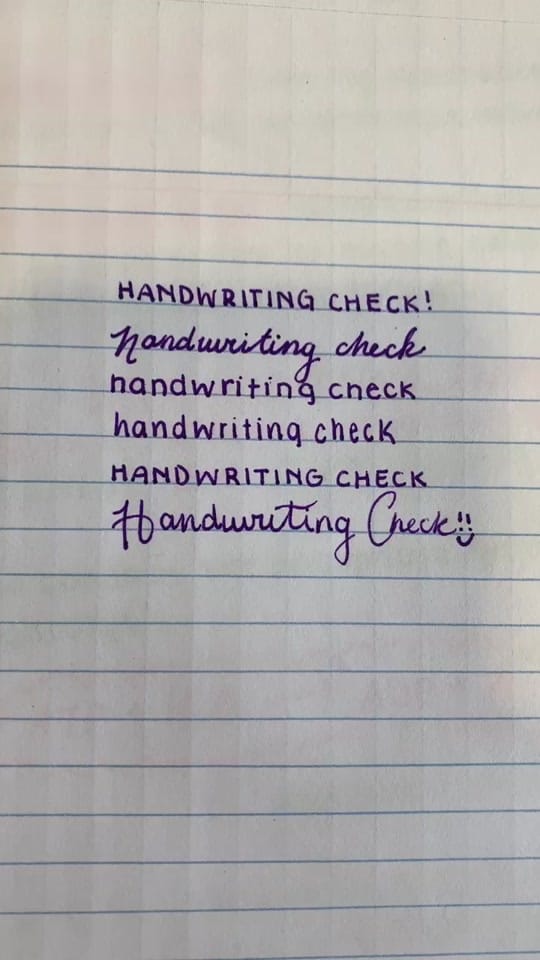 HANDWRITING CHECK!
handwriting check
handwriting check
handwriting check
HANDWRITING CHECK
Handwriting Check!!